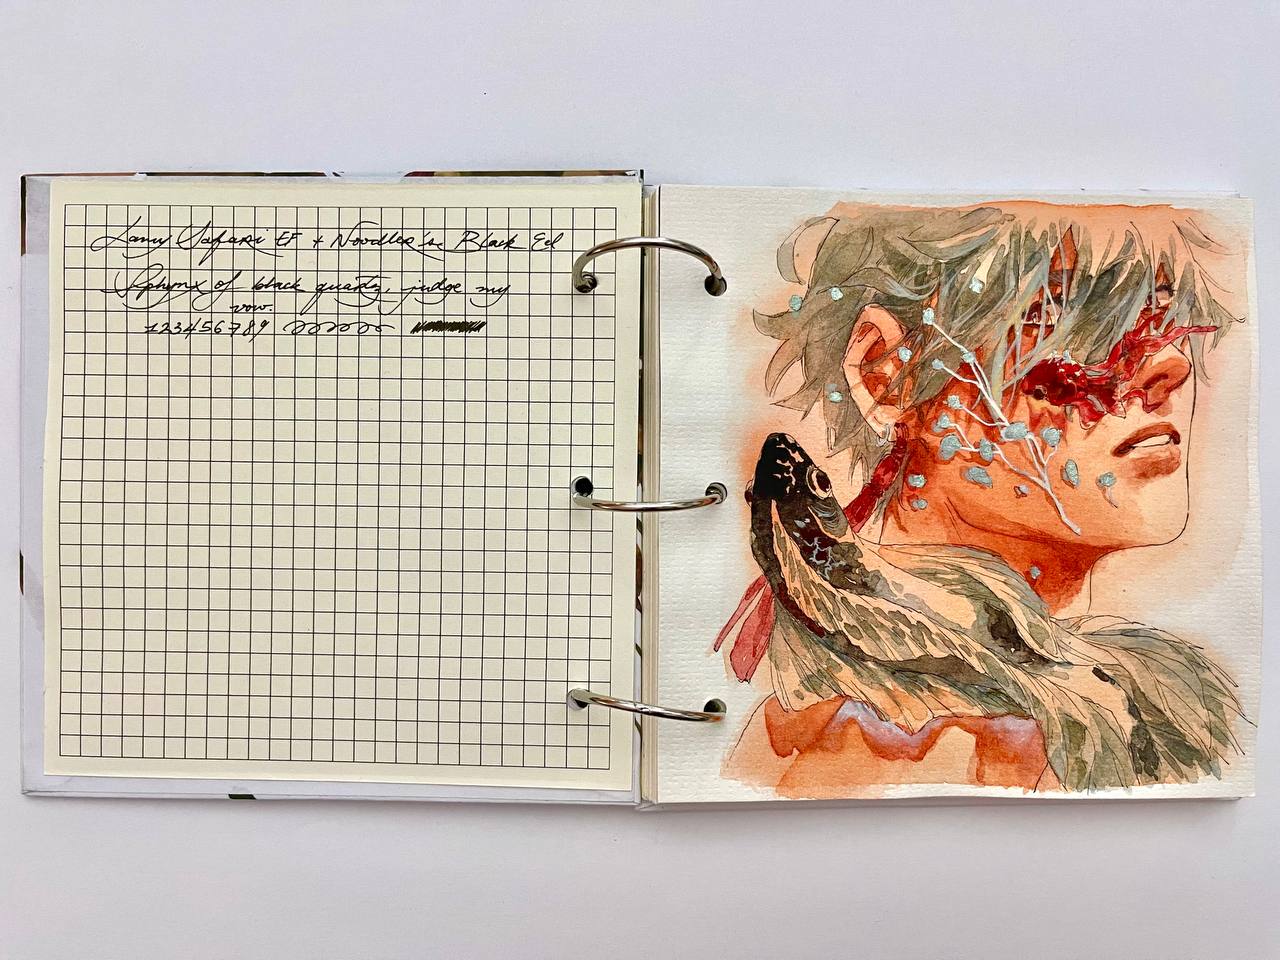 Lamy Safari EF + Noodler's Black Eel
Sphynx of black quartz, judge my
vow.
123456789